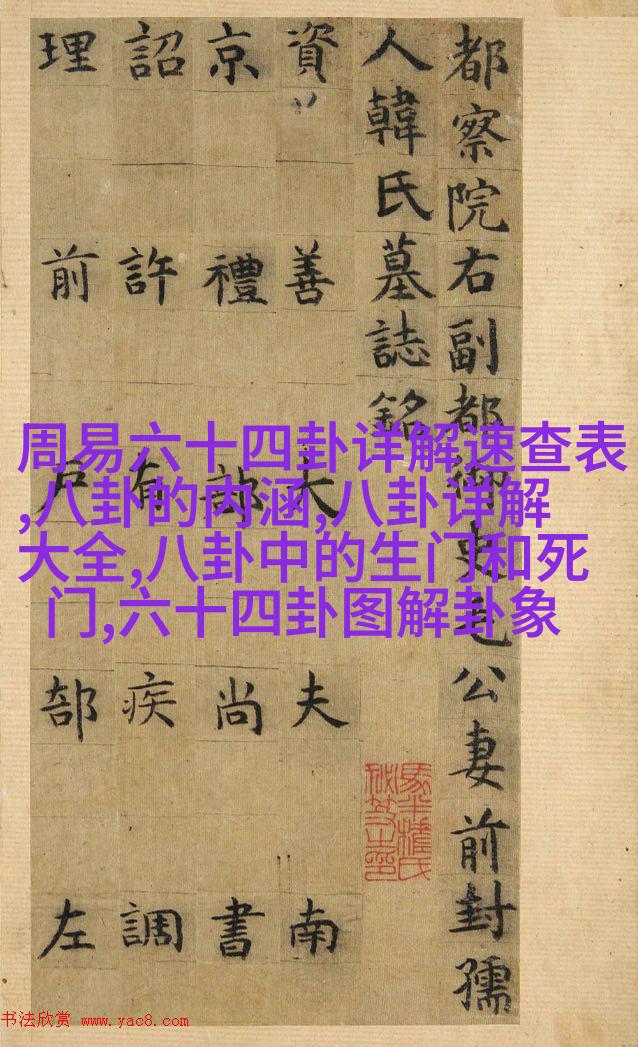 都察院右副都御史毛公妻前封孺
人韓氏墓誌銘
資善大夫南
京禮部尚書
詔許有疾調
理前戶部左
周易六十四卦详解速查表
,八卦的内涵,八卦详解
大全,八卦中的生门和死
门,六十四卦图解卦象
书法欣赏 www.yac8.com